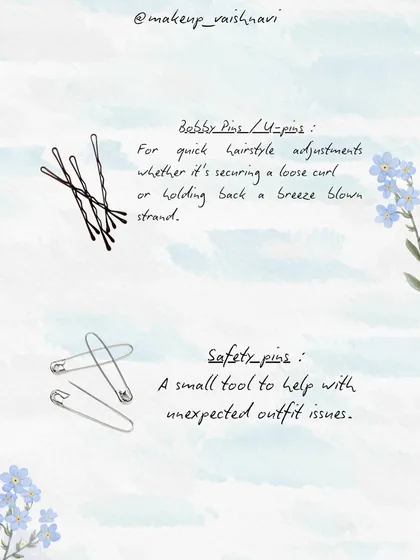 @makeup_vaishnavi
Bobby Pins / U-pins :
For quick hairstyle adjustments
whether it's securing a loose curl
or holding back a breeze blown
strand.
Safety pins :
A small tool to help with
unexpected outfit issues.